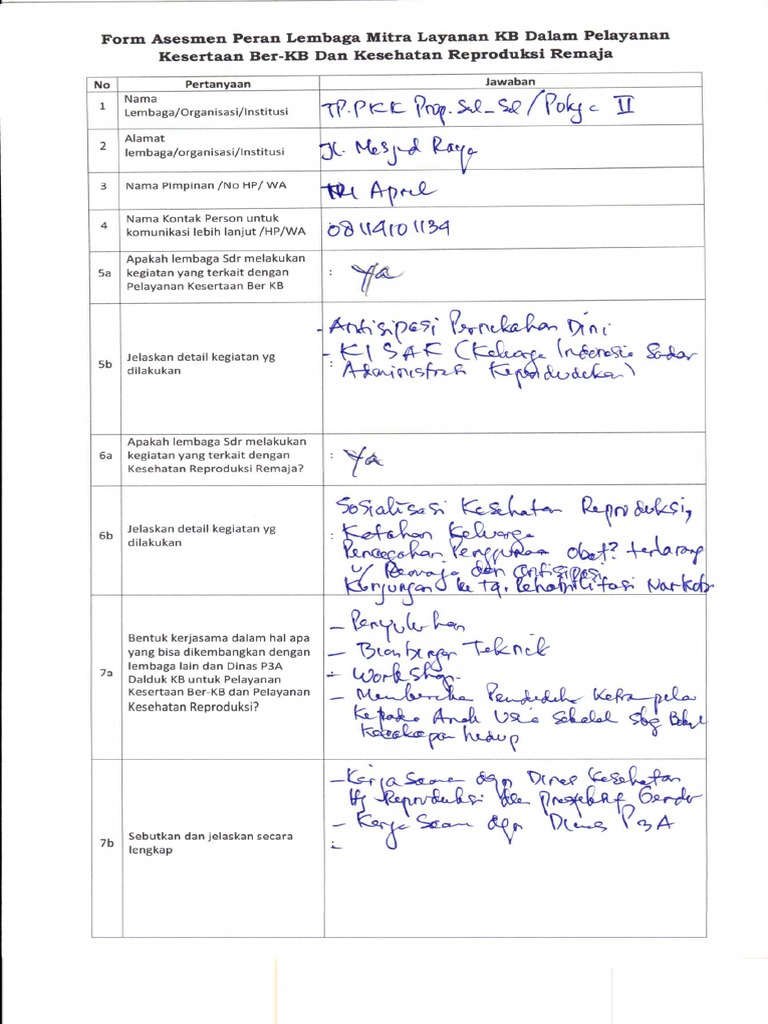 Form Asesmen Peran Lembaga Mitra Layanan KB Dalam Pelayanan
Kesertaan Ber-KB Dan Kesehatan Reproduksi Remaja
No Pertanyaan Jawaban
1 Nama Lembaga/Organisasi/Institusi TP.PKK Prop. Sul-Sel/Pokja II
2 Alamat lembaga/organisasi/Institusi Jl. Mesjid Raya
3 Nama Pimpinan /No HP/ WA April
4 Nama Kontak Person untuk
komunikasi lebih lanjut /HP/WA 08114101134
5a Apakah lembaga Sdr melakukan
kegiatan yang terkait dengan : Ya
Pelayanan Kesertaan Ber KB
5b Jelaskan detail kegiatan yg
dilakukan :
- Antisipasi Pernikahan Dini
- KISAK (Keluarga Indonesia Sadar
Administrasi Kependudukan)
6a Apakah lembaga Sdr melakukan
kegiatan yang terkait dengan : Ya
Kesehatan Reproduksi Remaja?
6b Jelaskan detail kegiatan yg
dilakukan :
Sosialisasi Kesehatan Reproduksi,
Ketahan Keluarga
Pencegahan Penggunaan Obat² terlarang
u/ Remaja dan antisipasi
Kunjungan ke Rehabilitasi Narkoba
7a Bentuk kerjasama dalam hal apa
yang bisa dikembangkan dengan
lembaga lain dan Dinas P3A :
Dalduk KB untuk Pelayanan
Kesertaan Ber-KB dan Pelayanan
Kesehatan Reproduksi?
- Penyuluhan
- Bimbingan Teknik
- Workshop
- Memberika Pendidika Ketrampila
Kepada Anak Usia Sekolah sbg Bekal
Kecakapan hidup
7b Sebutkan dan jelaskan secara
lengkap :
- Kerja Sama dgn Dinas Kesehatan
Reproduksi dan Gender
- Kerja Sama dgn Dinas P3A